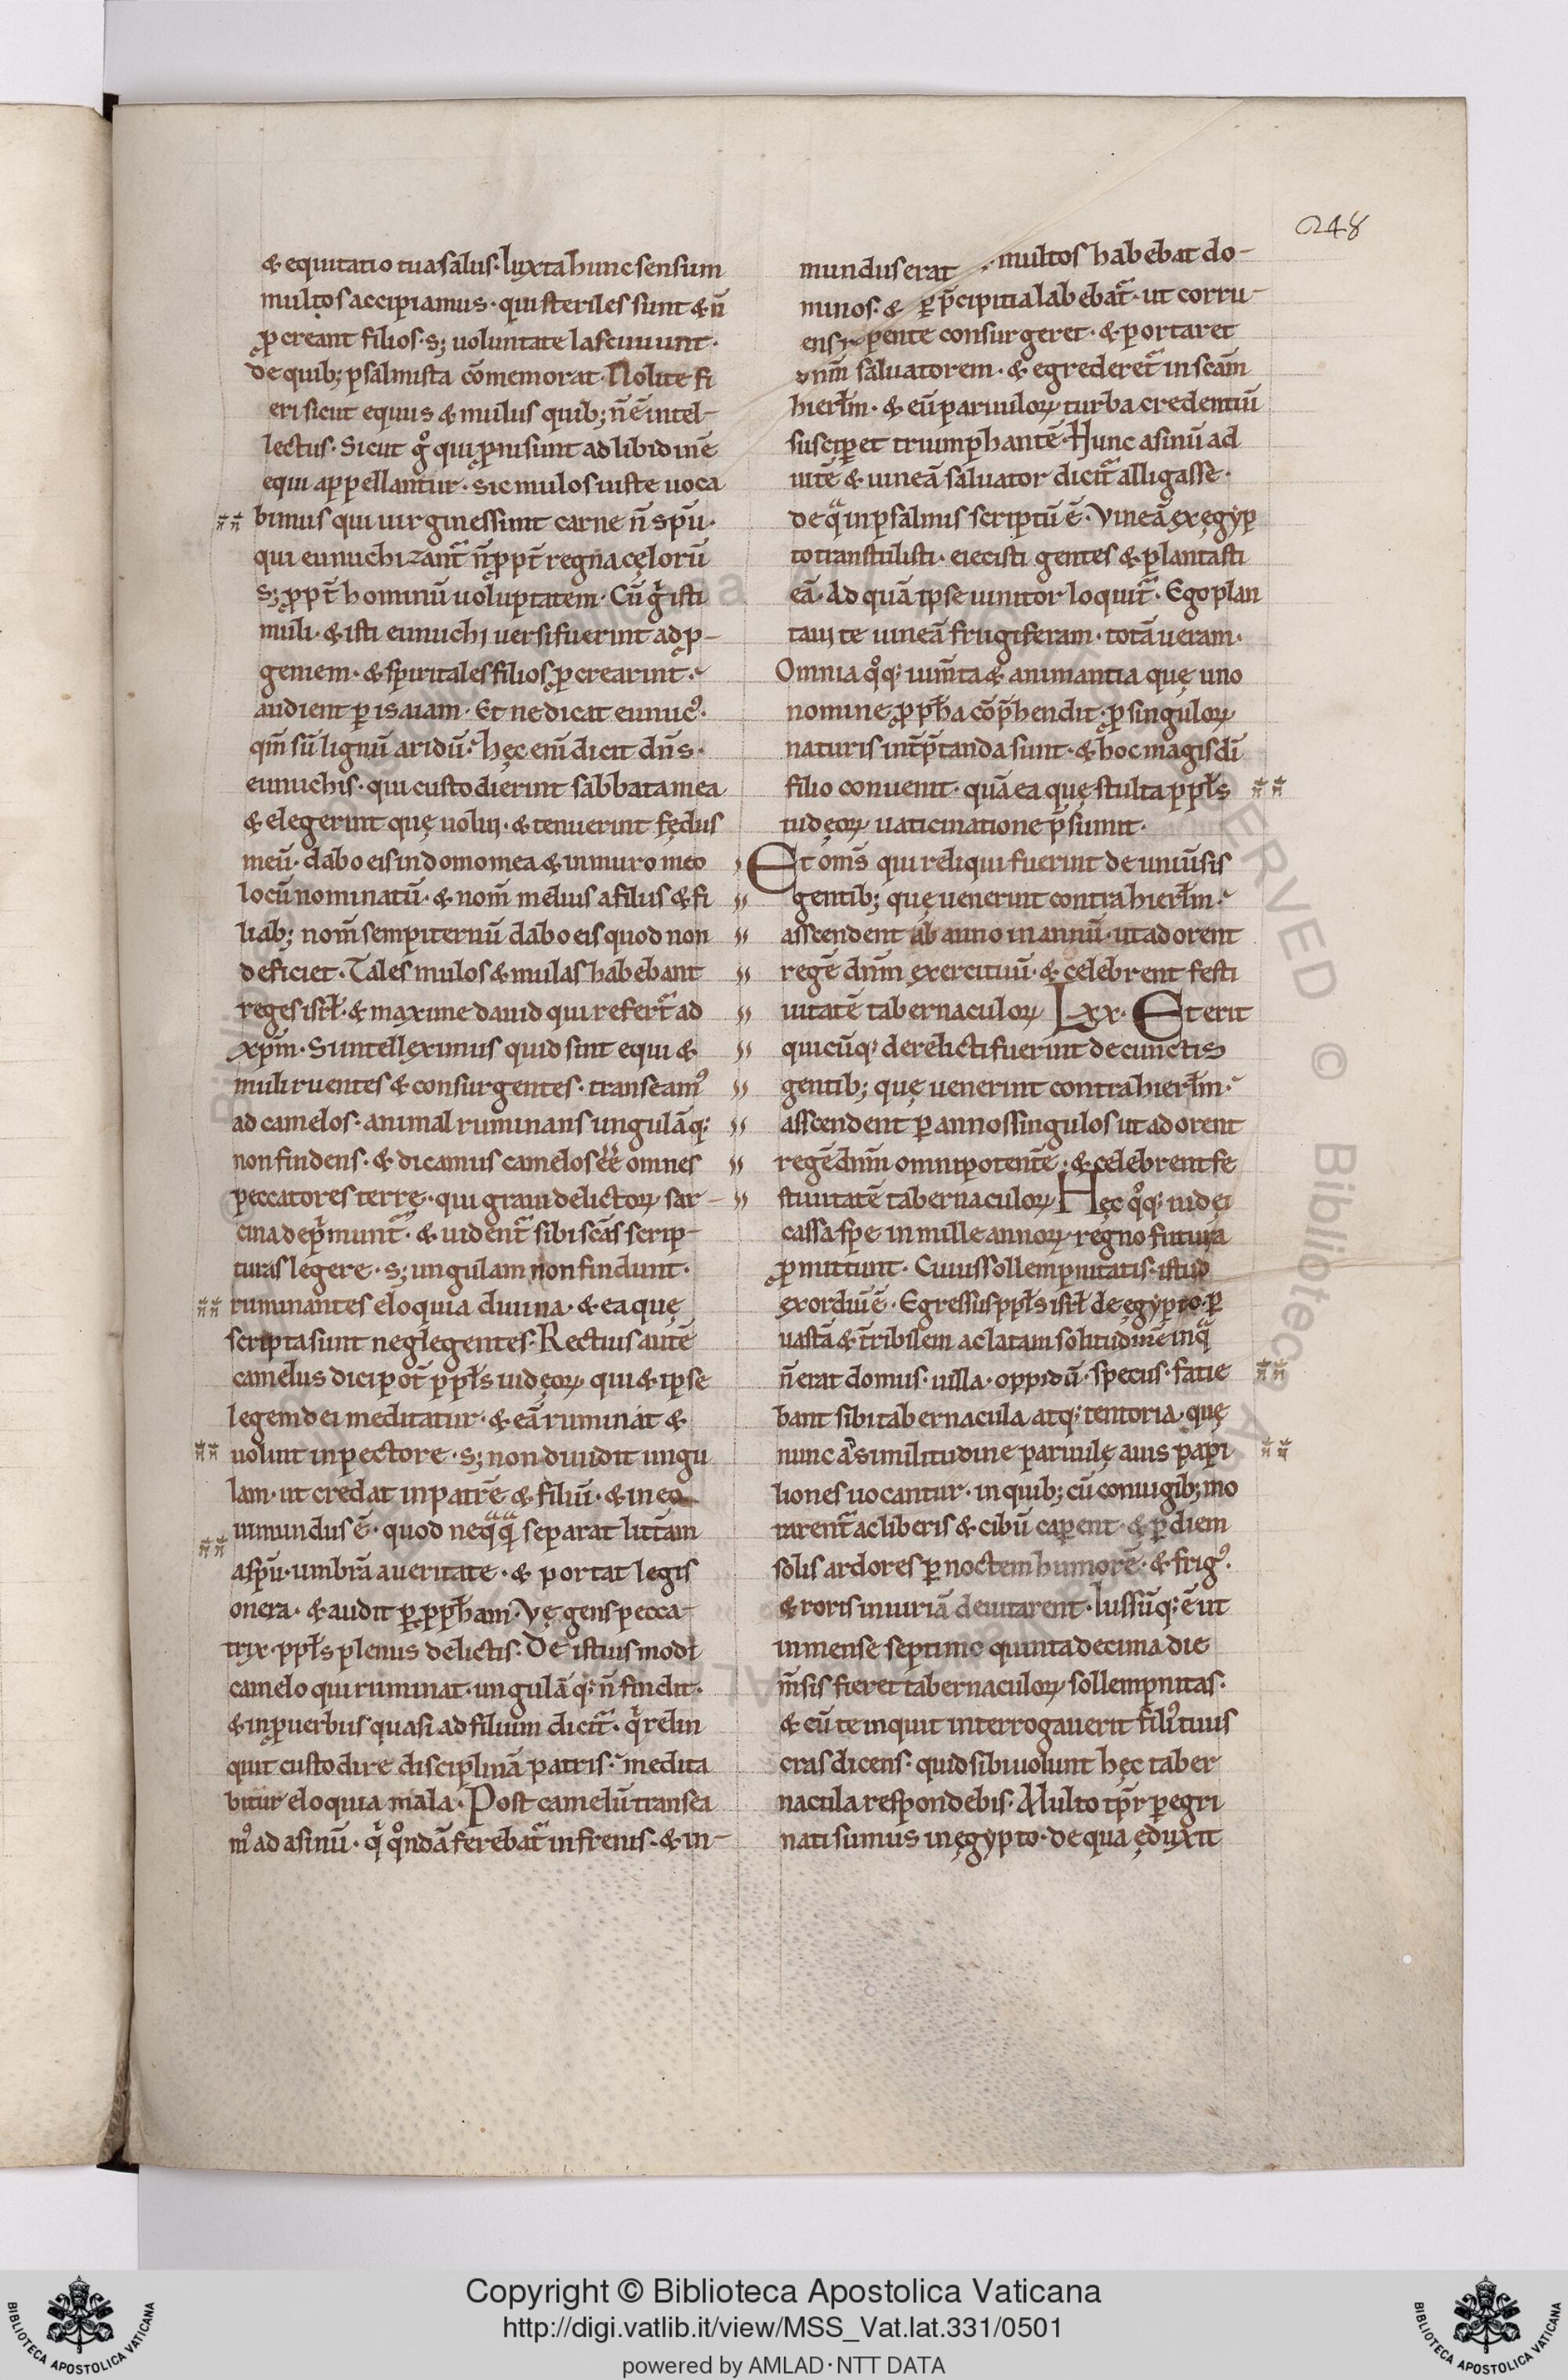 248
& equitatio tua salus· Iuxta hunc sensum
mulos accipiamus· qui steriles sunt & n̄
ꝓcreant filios· s; uoluntate lasciuiunt·
de quib; psalmista cōmemorat· Nolite fi
eri sicut equus & mulus quib; n̄ ē intel-
lectus· Sicut gͦ qui ꝓni sunt ad libidinē
equi appellantur· sic mulos iuste uoca
bimus qui uirgines sunt carne n̄ sp̄u·
qui eunuchizant̄ n̄ ꝓpt̄ regna cęlorū
s; ꝓpt̄ hominū uoluptatem· Cū gͥ isti
muli· & isti eunuchi uersi fuerint ad ꝓ-
geniem· & spiritales filios ꝓcrearint·
audient ꝑ isaiam· Et ne dicat eunucꝰ·
qm̄ sū lignū aridū· hęc enī dicit dn̄s·
eunuchis· qui custodierint sabbata mea
& elegerint quę uolui· & tenuerint fędus
meū· dabo eis in domo mea & in muro meo
locū nominatū· & nom̄ melius a filiis & fi
liab; nom̄ sempiternū dabo eis quod non
deficiet· Tales mulos & mulas habebant
reges isrł· & maxime dauid qui refert̄ ad
xp̄m· Si intelleximus quid sint equi &
muli ruentes & consurgentes· transeamꝰ
ad camelos· animal ruminans ungulāq;
non findens· & dicamus camelos ēē omnes
peccatores terrę· qui graui delictoꝝ sar-
cina dep̄munt̄· & uident̄ sibi scās scrip-
turas legere· s; ungulam non findunt·
ruminantes eloquia diuina· & ea quę
scripta sunt neglegentes· Rectius autē
camelus dici pot̄ ppłs iudęoꝝ qui & ipse
legem dei meditatur· & eā ruminat &
uoluit in pectore· s; non diuidit ungu
lam· ut credat in patrē & filiū· & in eo
inmundus ē· quod neq̄q̄ separat litt̄am
a sp̄u· umbrā a ueritate· & portat legis
onera· & audit ꝑ ꝓph̄am· Vę gens pecca-
trix· ppłs plenus delictis· De istius modi
camelo qui ruminat· ungulā q; n̄ findit·
& in ꝓuerbiis quasi ad filium dicit̄· qͥ relin
quit custodire disciplinā patris· medita
bitur eloquia mala· Post camelū transea
mꝰ ad asinū· qͥ qͦndā ferebat̄ infrenis· & in-
mundus erat · multos habebat do-
minos· & ꝑ p̄cipitia labebat̄· ut corru-
ens r pente consurgeret· & portaret
dnm̄ saluatorem· & egrederet̄ in scam̄
hierłm· & eū paruuloꝝ turba credentiū
susciꝑet triumphantē· Hunc asinū ad
uitē & uineā saluator dicit̄ alligasse·
de q̄ in psalmis scriptū ē· Vineā ex ęgyp
to transtulisti· eiecisti gentes & plantasti
eā· Ad quā ipse uinitor loquit̄· Ego plan
taui te uineā frugiferam· totā ueram·
Omnia qͦq; ium̄ta & animantia quę uno
nomine ꝓph̄a cōp̄hendit· ꝓ singuloꝝ
naturis int̄p̄tanda sunt· & hoc magis dī
filio conuenit· quā ea quę stulta ppłs
iudęoꝝ uaticinatione p̄sumit·
Et om̄s qui reliqui fuerint de uniūsis
gentib; quę uenerint contra hierłm·
asscendent ab anno in annū· ut adorent
regē dnm̄ exercituū· & celebrent festi
uitatē tabernaculoꝝ Lxx· Et erit
quicūq; derelicti fuerint de cunctis
gentib; quę uenerint contra hierłm·
asscendent ꝑ annos singulos ut adorent
regē dnm̄ omnipotentē· & celebrent fe
stiuitatē tabernaculoꝝ Hęc qͦq; iudęi
cassa spe in mille annoꝝ regno futura
ꝓmittunt· Cuius sollempnitatis· istud
exordiū ē· Egressus ppłs isrł de ęgypto· ꝑ
uastā & t̄ribilem ac latam solitudinē in q̄
n̄ erat domus· uilla· oppidū· specus· fatie
bant sibi tabernacula atq; tentoria· quę
nunc a similitudine paruulę auis papi
liones uocantur· in quib; cū coniugib; mo
rarent̄ ac liberis & cibū caperent· & ꝑ diem
solis ardores ꝑ noctem humorē· & frigꝰ·
& roris iniuriā deuitarent· Iussūq; ē ut
in mense septimo quinta decima die
m̄sis fieret tabernaculoꝝ sollempnitas·
& cū te inquit interrogauerit filiꝰ tuus
cras dicens· quid sibi uolunt hęc taber
nacula respondebis· Multo tp̄r ꝑegri
nati sumus in ęgypto· de qua eduxit
Copyright © Biblioteca Apostolica Vaticana
http://digi.vatlib.it/view/MSS_Vat.lat.331/0501
powered by AMLAD·NTT DATA
BIBLIOTECA APOSTOLICA VATICANA
BIBLIOTECA APOSTOLICA VATICANA